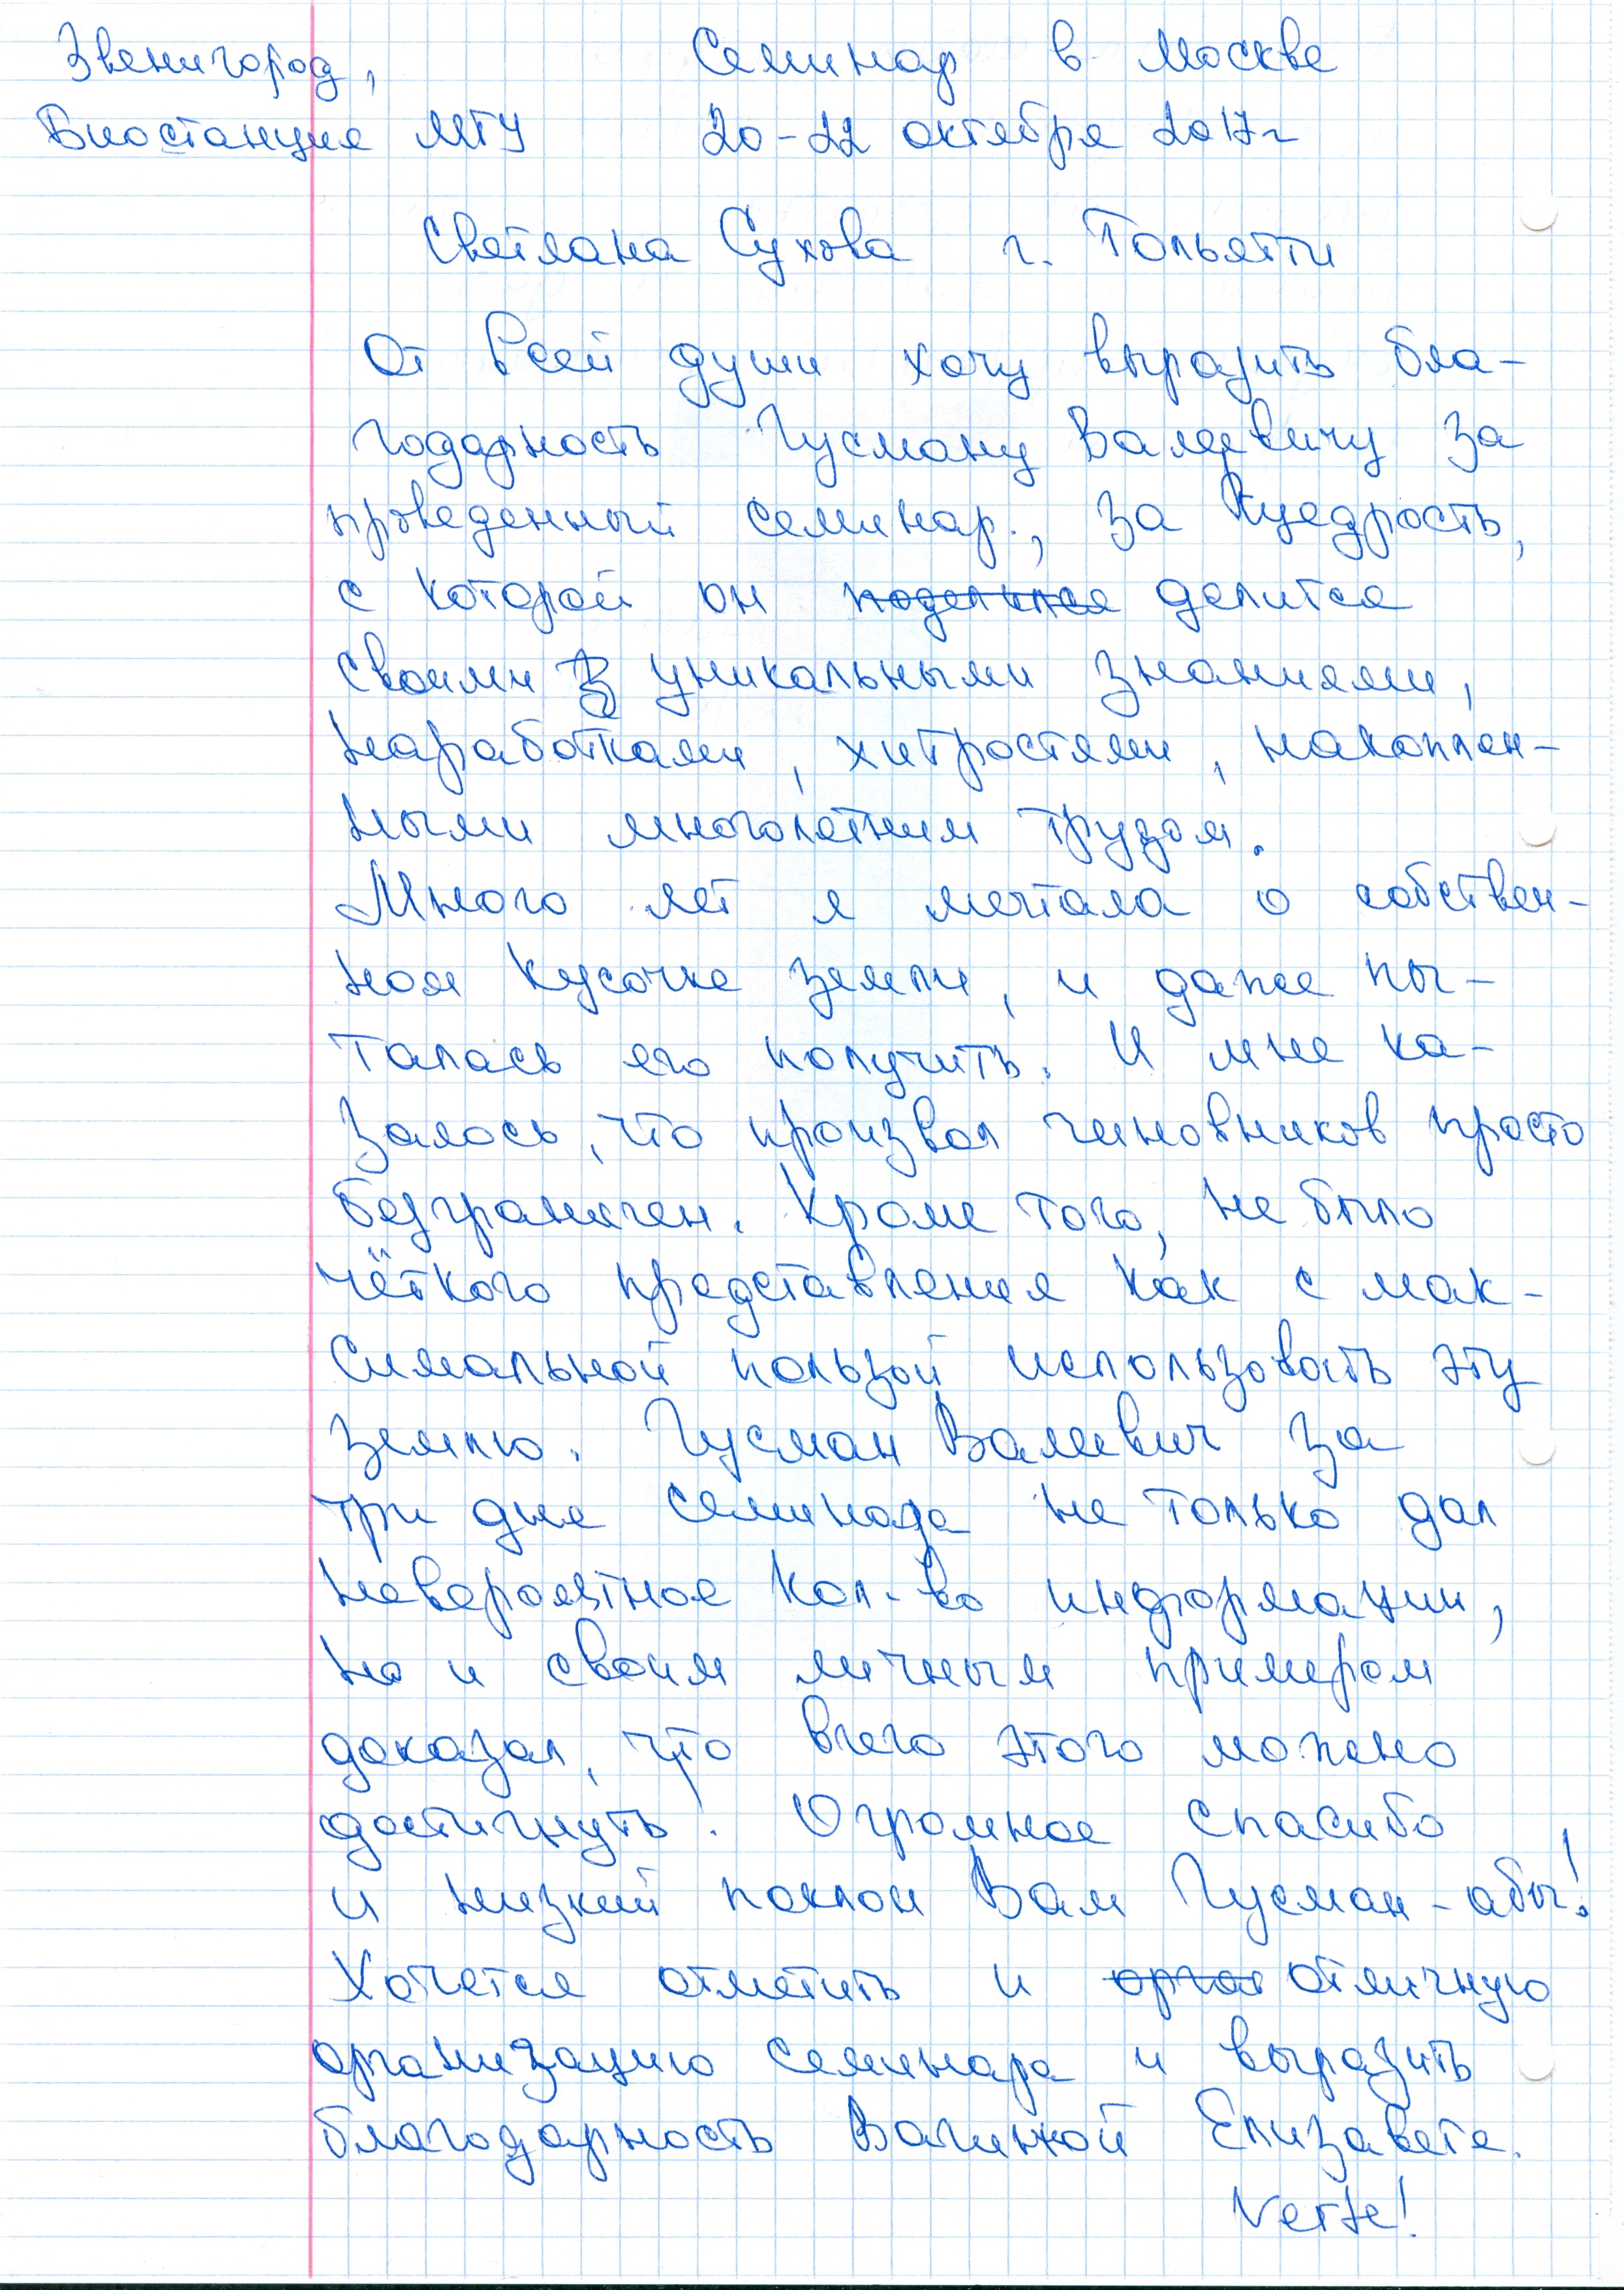 Звенигород, Семинар в Москве
Биостанция МГУ 20-22 октября 2017г
Светлана Сухова г. Тольятти
От всей души хочу выразить бла-
годарность Гусману Валеевичу за
проведенный семинар, за щедрость,
с которой он поделился делится
своими уникальными знаниями,
наработками, хитростями, накоплен-
ными многолетним трудом.
Много лет я мечтала о собствен-
ном кусочке земли, и даже пы-
талась его получить. И мне ка-
залось, что произвол чиновников просто
безграничен. Кроме того, не было
чёткого представления как с мак-
симальной пользой использовать эту
землю. Гусман Валеевич за
три дня семинара не только дал
невероятное кол-во информации,
но и своим личным примером
доказал, что всего этого можно
достигнуть! Огромное спасибо
и низкий поклон Вам Гусман-абы!
Хочется отметить и отличную
организацию семинара и выразить
благодарность Вагинкой Елизавете.
Verte!